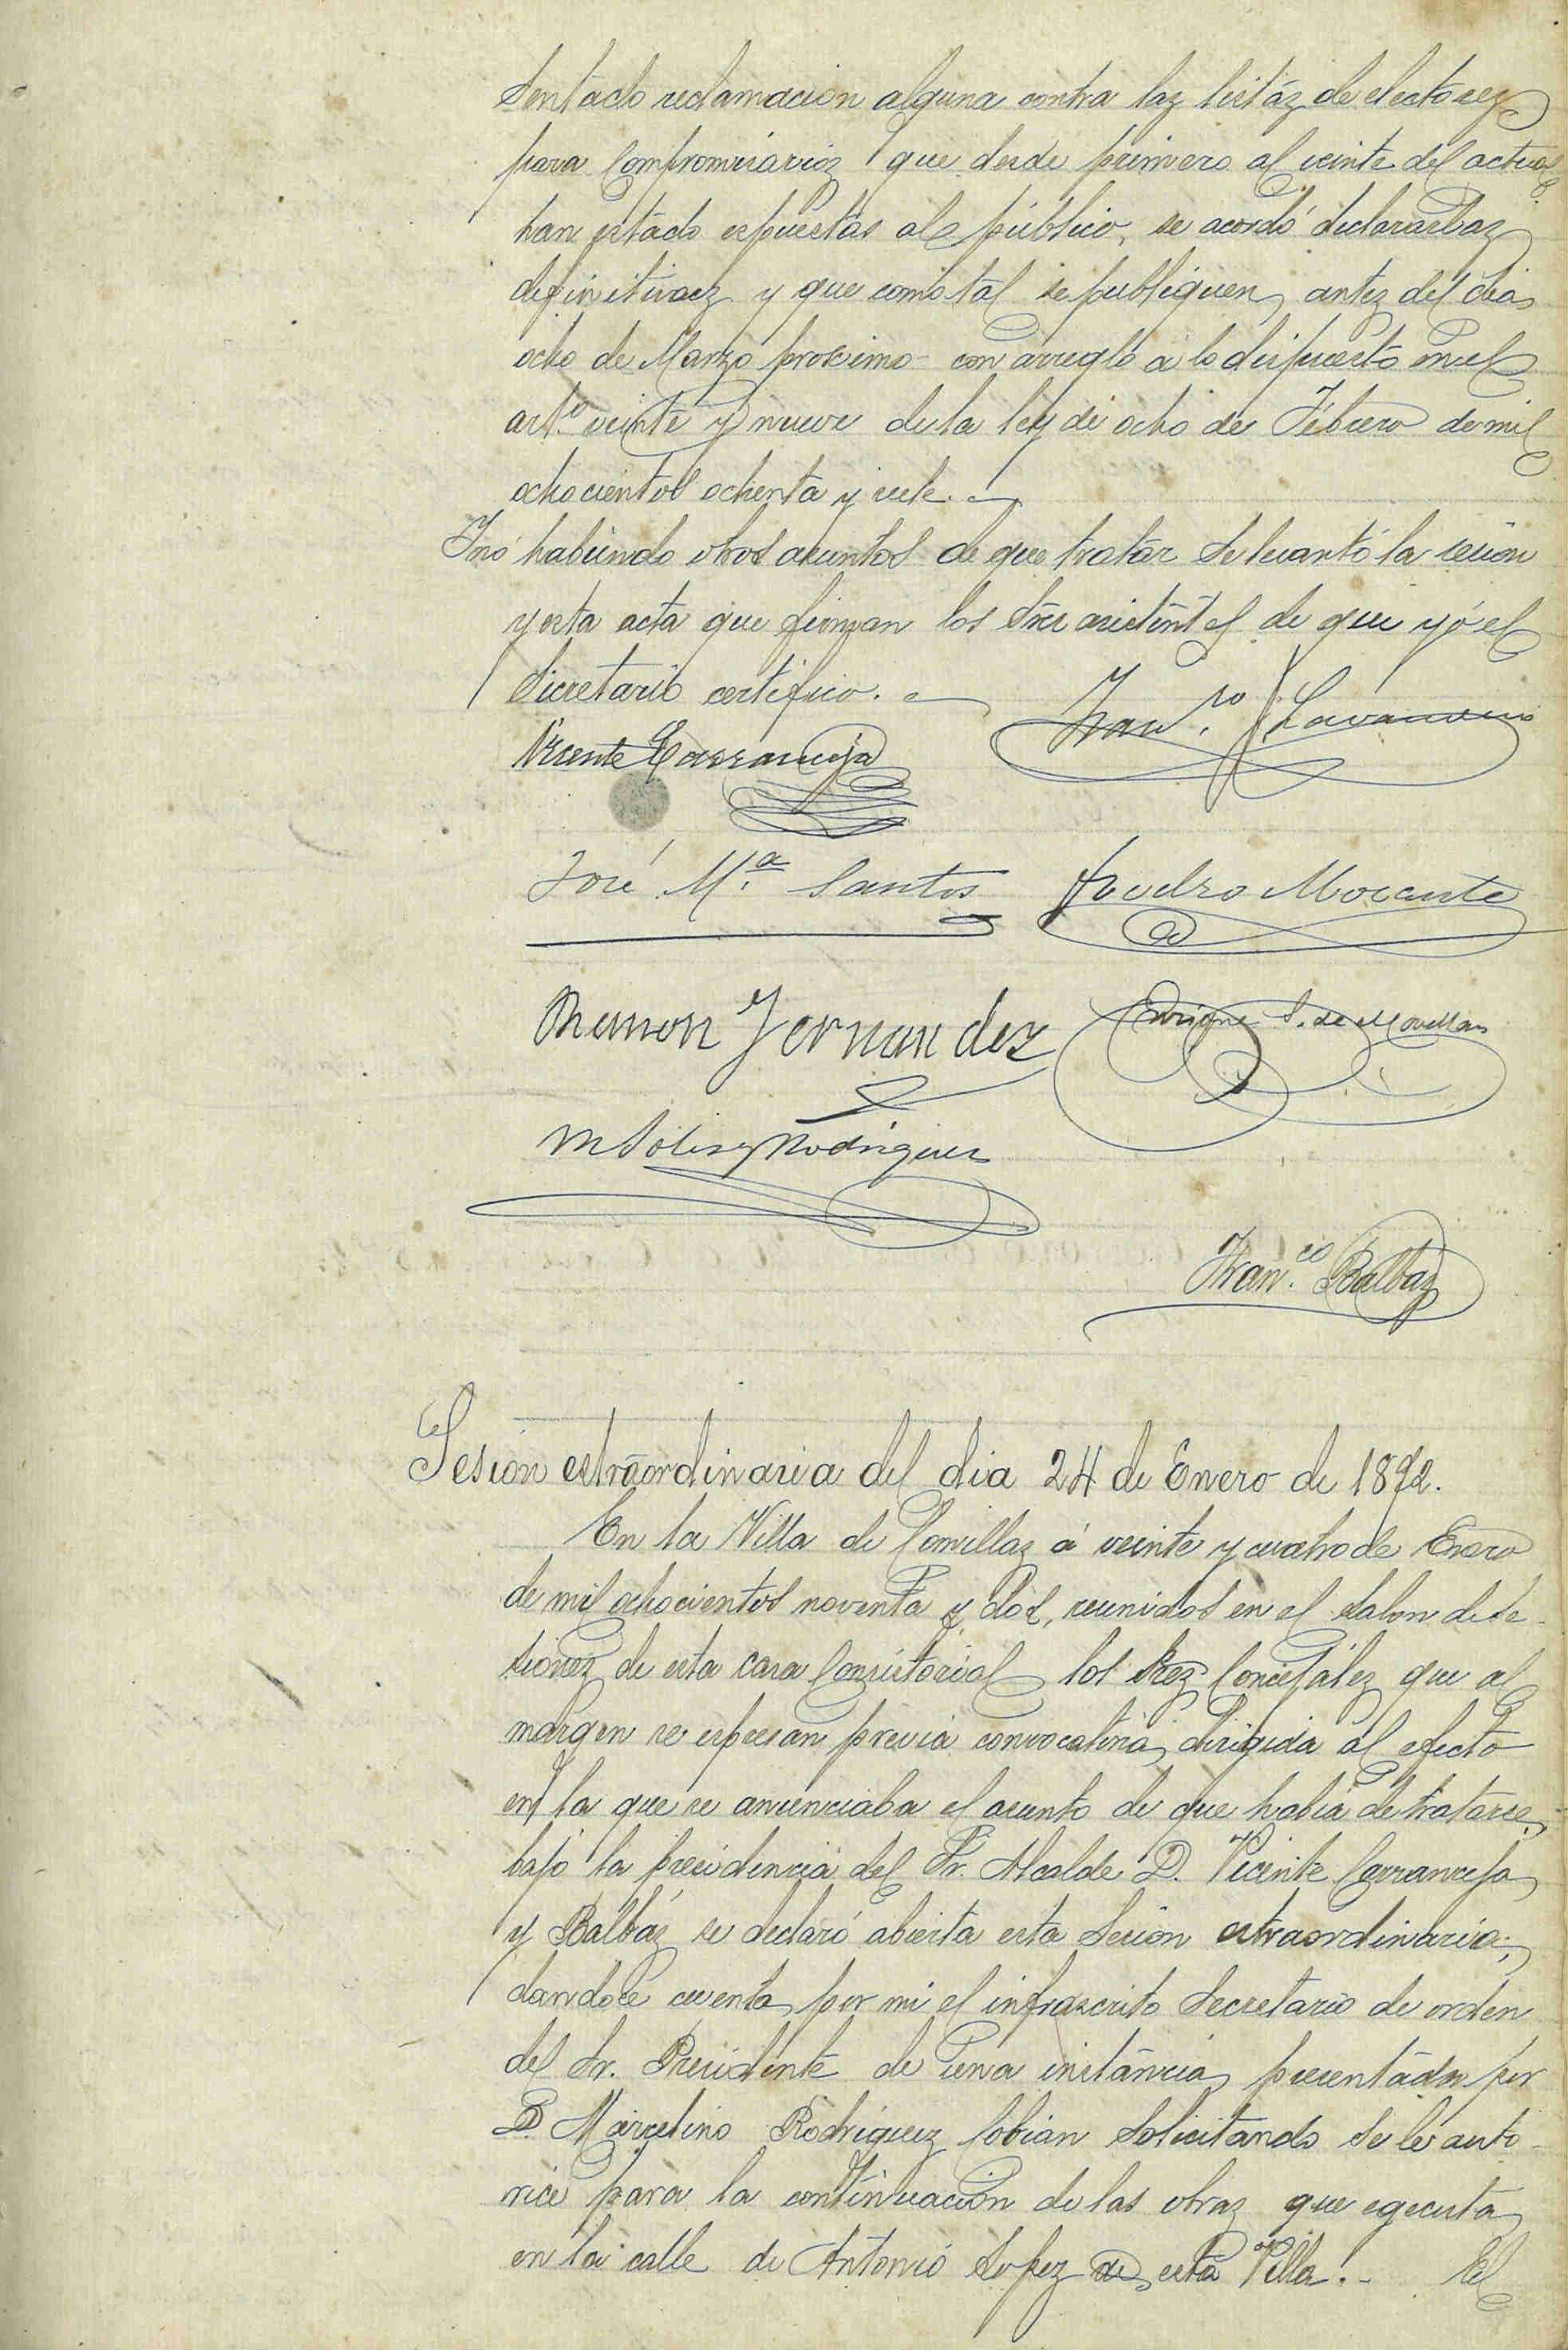 sentado reclamacion alguna contra las listas de electores
para Compromisarios que desde primero al veinte del actual
han estado espuestas al público, se acordó declararlas
definitivas y que como tal se publiquen, antes del dia
ocho de Marzo proximo con arreglo a lo dispuesto en el
art.º veinte y nueve de la ley de ocho de Febrero de mil
ochocientos ochenta y siete.
Y no habiendo otros asuntos de que tratar se levantó la sesion
y esta acta que firman los Sres asistentes de que yó el
Secretario certifico.
Vicente Carranceja Fran.co
José M.ª Santos Morante
Ramon Fernandez Enrique S. de Movellan
M Solis y Rodriguez
Fran.co Balbás
Sesion estraordinaria del dia 24 de Enero de 1892.
En la Villa de Comillas á veinte y cuatro de Enero
de mil ochocientos noventa y dos, reunidos en el salon de se-
siones de esta casa Consistorial los Sres Concejáles que al
margen se espresan previa convocatoria dirigida al efecto
en la que se anunciaba el asunto de que habia de tratarse,
bajo la presidencia del Sr. Alcalde D. Vicente Carranceja
y Balbás se declaró abierta esta Sesion estraordinaria,
dandose cuenta por mi el infrascrito Secretario de orden
del Sr. Presidente de una instáncia presentada por
D. Marcelino Rodriguez Cobian solicitando se le auto-
rice para la continuacion de las obras que egecuta
en la calle de Antonio Lopez de esta Villa. El